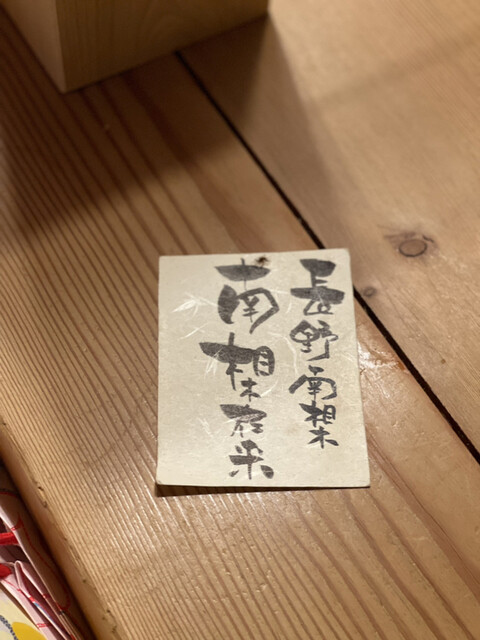 長野南相木
南相木在来